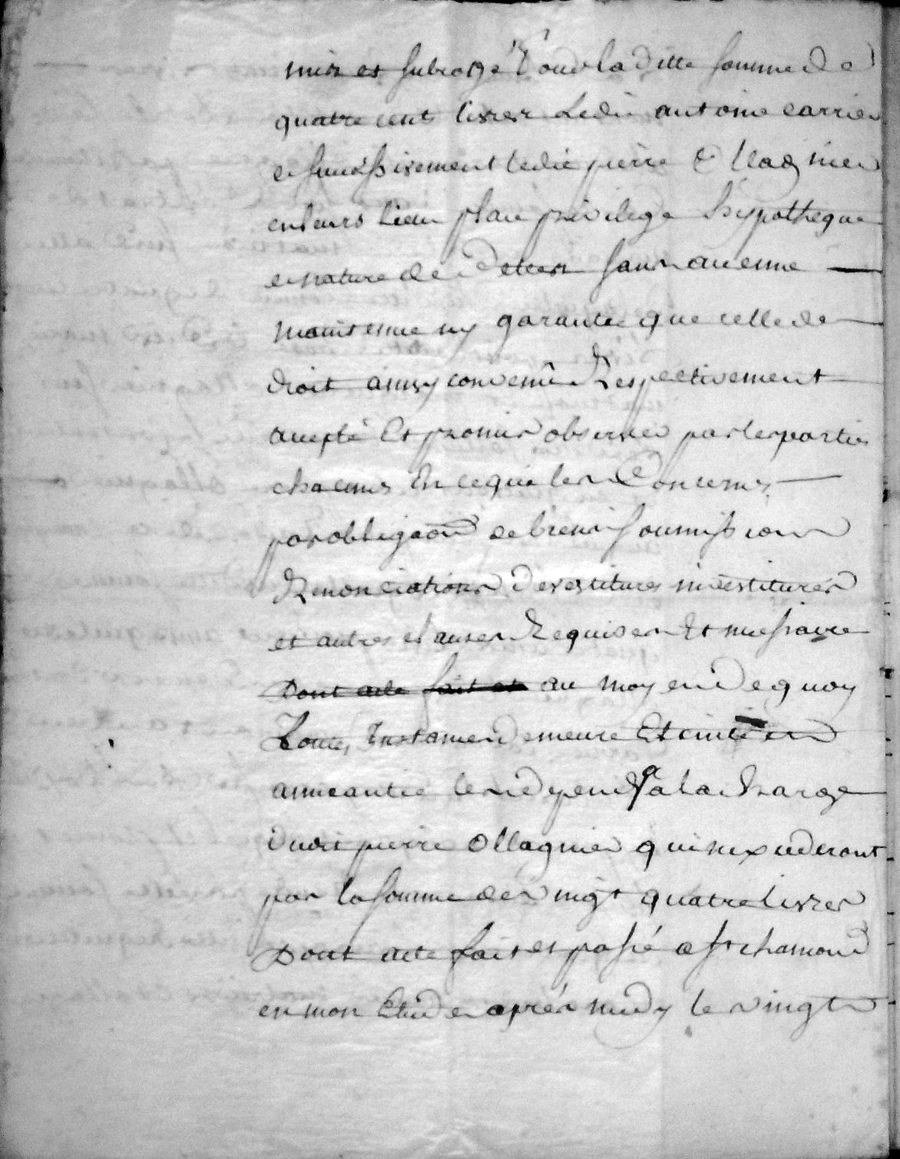 mis et subrogé Pour la ditte somme de
quatre cent livres Ledit antoine carrier
et sucessivement ledit pierre Ollagnier
en leurs Lieu place privilege hypotheque
et nature de dettes sans aucune
maintenue ny garantie que celle de
droit ainsy convenu Respectivement
accepté Et promis observer par les parties
chacunes En ce qui les Concerne,
par obligaon de biens soumissions
Renonciations devestitures investitures
et autres clauses Requises Et necessaire
Dont acte fait et au moyen de quoy
Toute Instance demeure Eteinte et
aneantie les depends a la charge
dudit pierre Ollagnier qui n'excederont
par la somme de vingt quatre livres
Dont acte fait et passé a st chamond
en mon Etude après midy le vingt